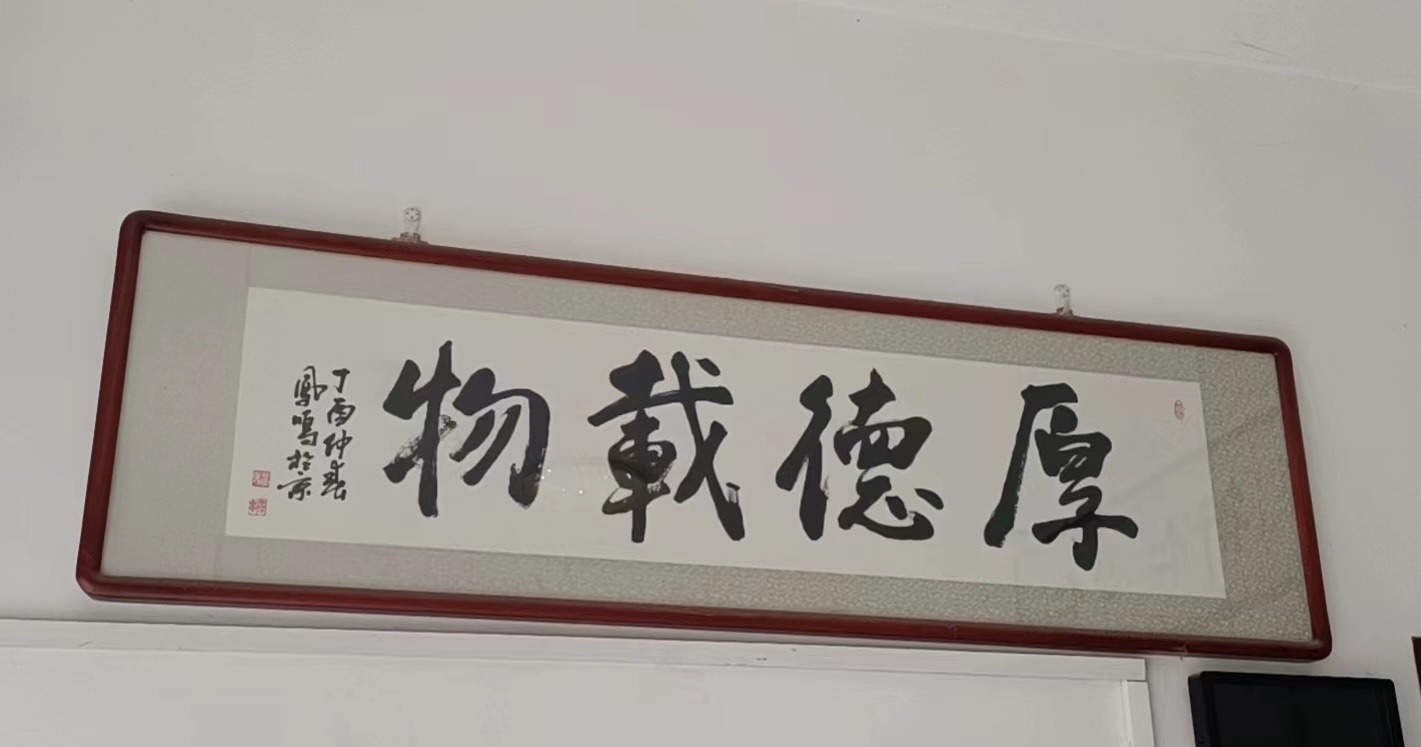 厚德載物
丁酉仲春
鳳鳴於京